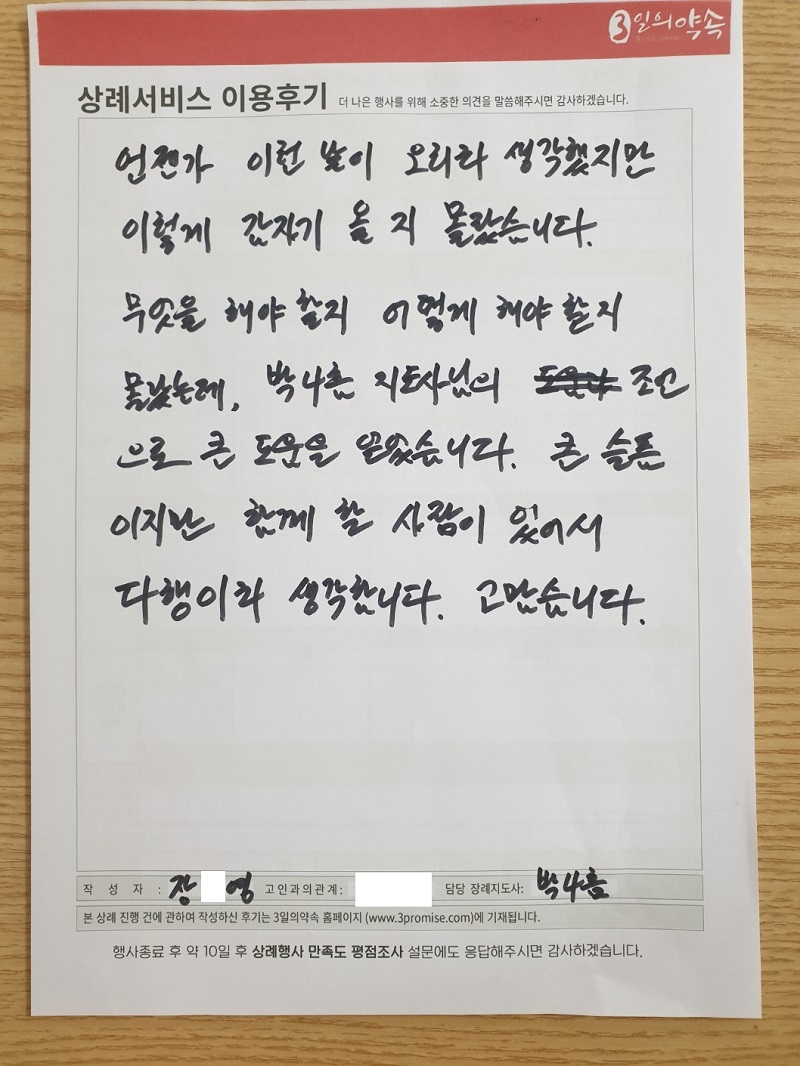 3일의약속
상례서비스 이용후기 더 나은 행사를 위해 소중한 의견을 말씀해주시면 감사하겠습니다.
언젠가 이런 날이 오리라 생각했지만
이렇게 갑자기 올 지 몰랐습니다.
무엇을 해야 할지 어떻게 해야 할지
몰랐는데, 박나흠 지도사님의 조언
으로 큰 도움을 얻었습니다. 큰 슬픔
이지만 함께 할 사람이 있어서
다행이라 생각합니다. 고맙습니다.
작 성 자 : 장 영 고인과의관계: 담당 장례지도사: 박나흠
본 상례 진행 건에 관하여 작성하신 후기는 3일의약속 홈페이지 (www.3promise.com)에 기재됩니다.
행사종료 후 약 10일 후 상례행사 만족도 평점조사 설문에도 응답해주시면 감사하겠습니다.